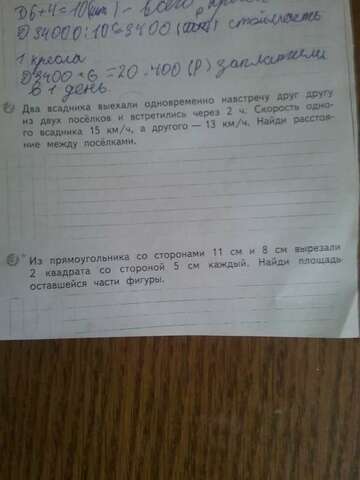 1) 6+4=10(шт) - всего
2) 34000:10=3400 стоимость
1 кресла
3) 3400·6=20.400 (р) заплатили
в 1 день.
Два всадника выехали одновременно навстречу друг другу
из двух посёлков и встретились через 2 ч. Скорость одно-
го всадника 15 км/ч, а другого — 13 км/ч. Найди расстоя-
ние между посёлками.
Из прямоугольника со сторонами 11 см и 8 см вырезали
2 квадрата со стороной 5 см каждый. Найди площадь
оставшейся части фигуры.